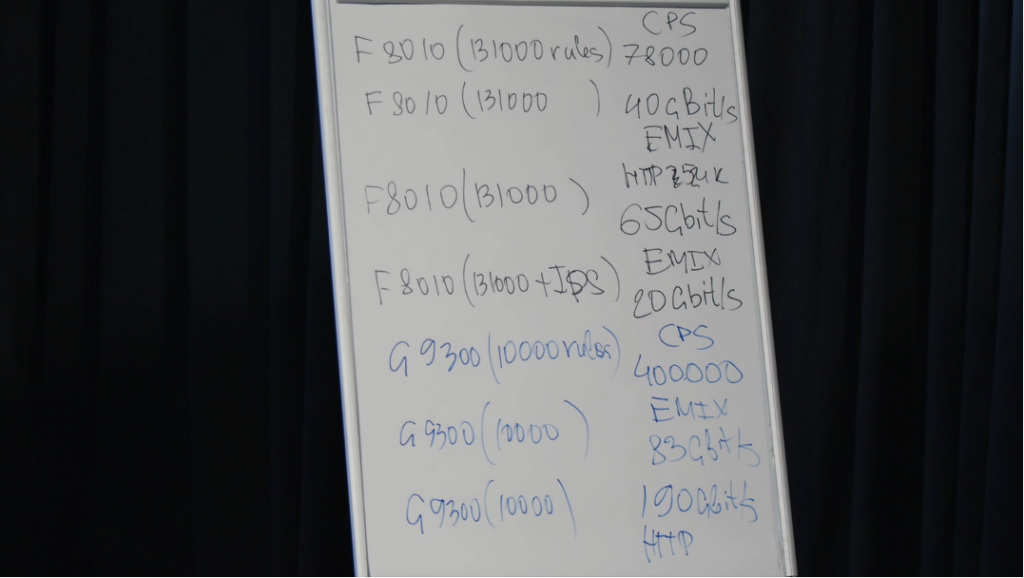 CPS
F8010 (131000 rules) 78000
F8010 (131000 ) 40GBit/s
EMIX
HTP
F8010 (131000 ) 65Gbit/s
EMIX
F8010 (131000 +IPS) 20Gbit/s
CPS
G9300 (10000 rules) 400000
EMIX
G9300 (10000 ) 83Gbit/s
G9300 (10000 ) 190Gbit/s
HTTP